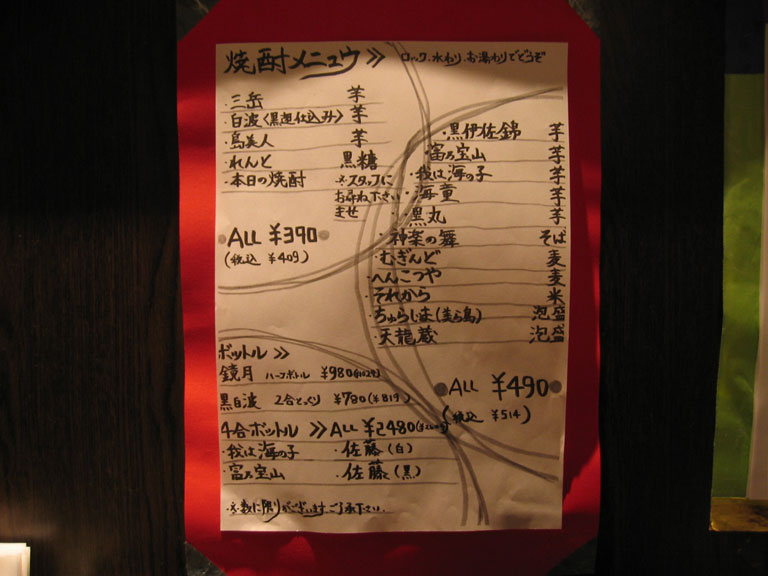 焼酎メニュウ >> ロック、水わり、お湯わりでどうぞ
・三岳 芋
・白波〈黒麹仕込み〉芋
・島美人 芋
・れんと 黒糖
・本日の焼酎 ※スタッフに
お尋ね下さい
ませ
・ALL ¥390・
(税込 ¥409)
・黒伊佐錦 芋
・富乃宝山 芋
・我は海の子 芋
・海童 芋
・黒丸 芋
・神楽の舞 そば
・むぎんど 麦
・へんこつや 麦
・それから 米
・ちゅらしま(美ら島) 泡盛
・天龍蔵 泡盛
・ALL ¥490・
(税込 ¥514)
ボットル >>
鏡月 ハーフボトル ¥980
黒白波 2合とっくり ¥780(¥819)
4合ボットル >> ALL ¥2480
・我は海の子 ・佐藤(白)
・富乃宝山 佐藤(黒)
※数に限りがございます。ご了承下さい。